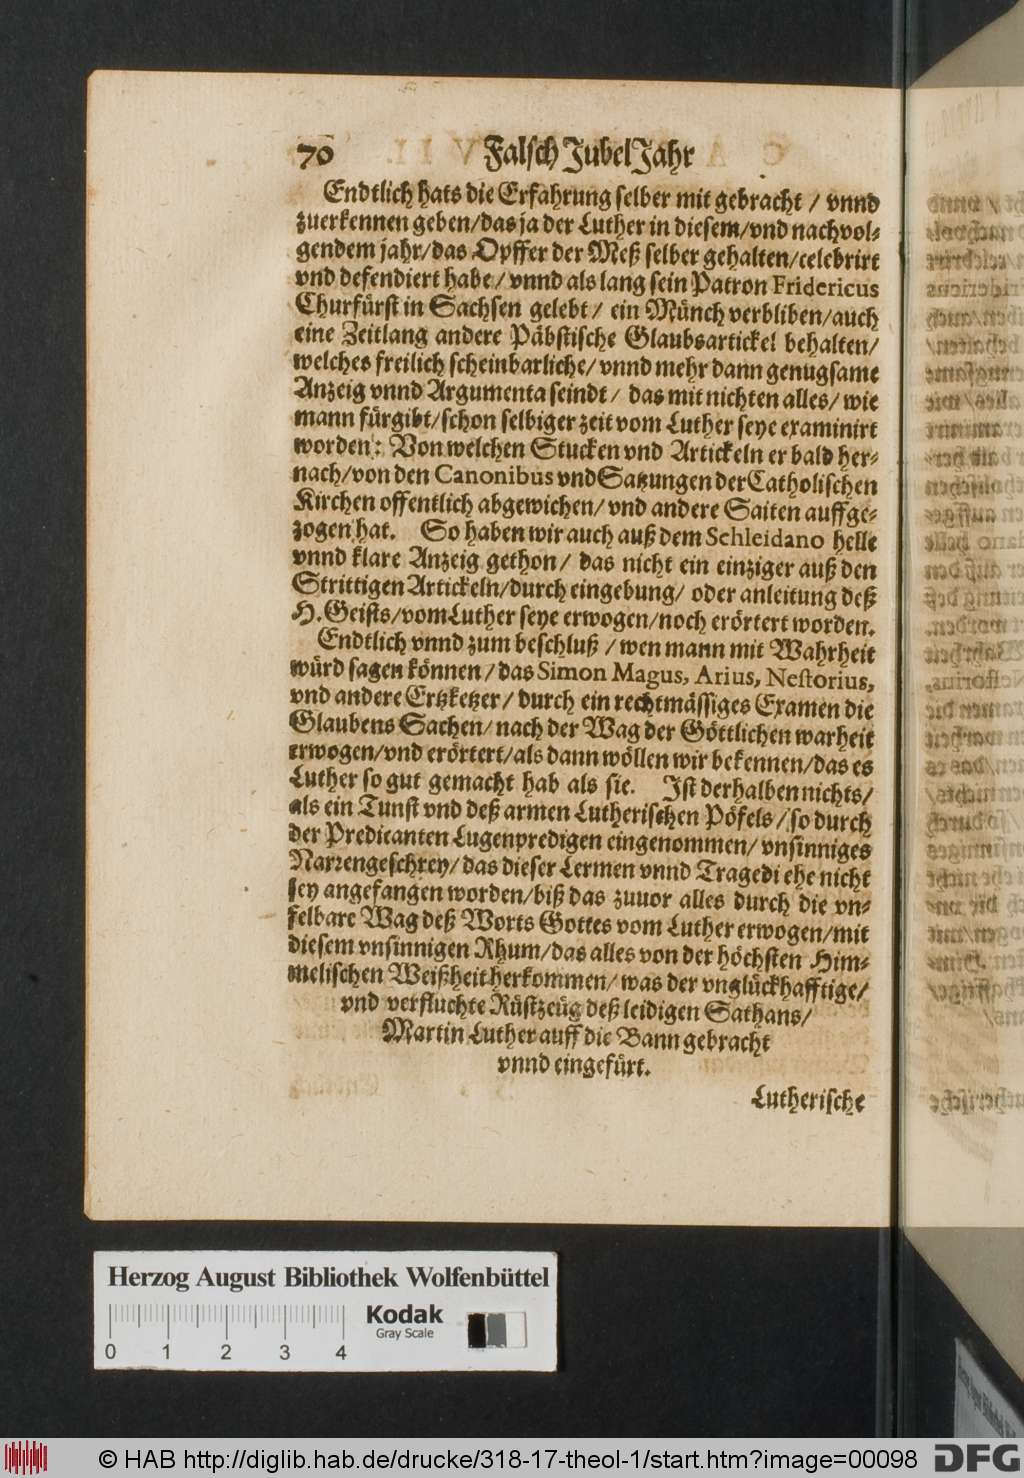 70 Falsch JubelJahr
Endtlich hats die Erfahrung selber mit gebracht / vnnd
zuerkennen geben/das ja der Luther in diesem/vnd nachvol-
gendem jahr/das Opffer der Meß selber gehalten/celebrirt
vnd defendiert habe/ vnnd als lang sein Patron Fridericus
Churfürst in Sachsen gelebt/ ein Münch verbliben/auch
eine Zeitlang andere Päbstische Glaubsartickel behalten/
welches freilich scheinbarliche/ vnnd mehr dann genugsame
Anzeig vnnd Argumenta seindt/ das mit nichten alles/ wie
mann fürgibt/schon selbiger zeit vom Luther seye examinirt
worden: Von welchen Stucken vnd Artickeln er bald her-
nach/von den Canonibus vnd Satzungen der Catholischen
Kirchen offentlich abgewichen/ vnd andere Saiten auffge-
zogen hat. So haben wir auch auß dem Schleidano helle
vnnd klare Anzeig gethon/ das nicht ein einziger auß den
Strittigen Artickeln/durch eingebung/ oder anleitung deß
H. Geists/vom Luther seye erwogen/noch erörtert worden.
Endtlich vnnd zum beschluß /wen mann mit Wahrheit
würd sagen können/das Simon Magus, Arius, Nestorius,
vnd andere Ertzketzer/ durch ein rechtmässiges Examen die
Glaubens Sachen/ nach der Wag der Göttlichen warheit
erwogen/vnd erörtert/als dann wöllen wir bekennen/das es
Luther so gut gemacht hab als sie. Ist derhalben nichts/
als ein Tunst vnd deß armen Lutherischen Pöfels/ so durch
der Predicanten Lugenpredigen eingenommen/ vnsinniges
Narrengeschrey/das dieser Lermen vnnd Tragedi ehe nicht
sey angefangen worden/biß das zuuor alles durch die vn-
felbare Wag deß Worts Gottes vom Luther erwogen/mit
diesem vnsinnigen Rhum/das alles von der höchsten Him-
melischen Weißheit herkommen/ was der vnglückhafftige/
vnd verfluchte Rüstzeüg deß leidigen Sathans/
Martin Luther auff die Bann gebracht
vnnd eingefürt.
Lutherische
Herzog August Bibliothek Wolfenbüttel
Kodak
Gray Scale
0 1 2 3 4
© HAB http://diglib.hab.de/drucke/318-17-theol-1/start.htm?image=00098 DFG